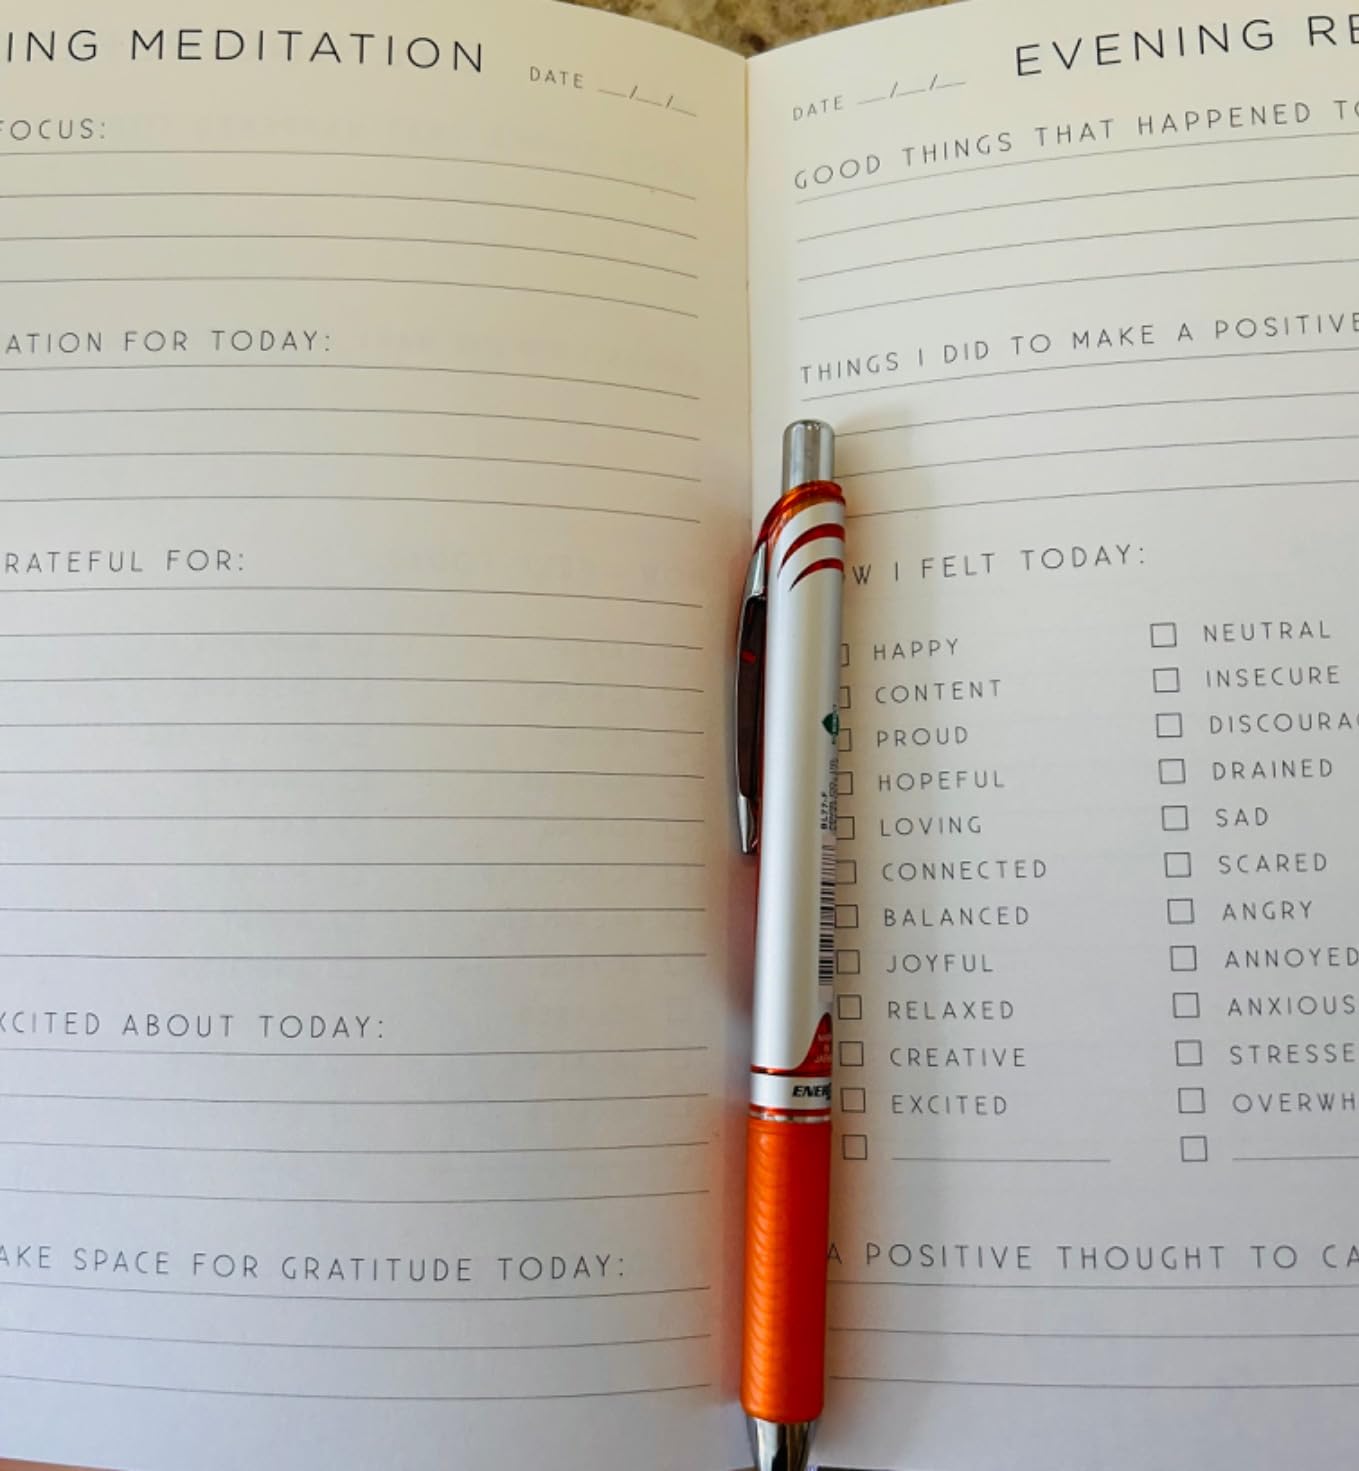 ING MEDITATION
DATE __/__/__
FOCUS:
ATION FOR TODAY:
RATEFUL FOR:
XCITED ABOUT TODAY:
AKE SPACE FOR GRATITUDE TODAY:
DATE __/__/__
EVENING RE
GOOD THINGS THAT HAPPENED TO
THINGS I DID TO MAKE A POSITIVE
W I FELT TODAY:
HAPPY
CONTENT
PROUD
HOPEFUL
LOVING
CONNECTED
BALANCED
JOYFUL
RELAXED
CREATIVE
EXCITED
NEUTRAL
INSECURE
DISCOURAG
DRAINED
SAD
SCARED
ANGRY
ANNOYED
ANXIOUS
STRESSE
OVERWH
A POSITIVE THOUGHT TO CA
BL77-F
ENER